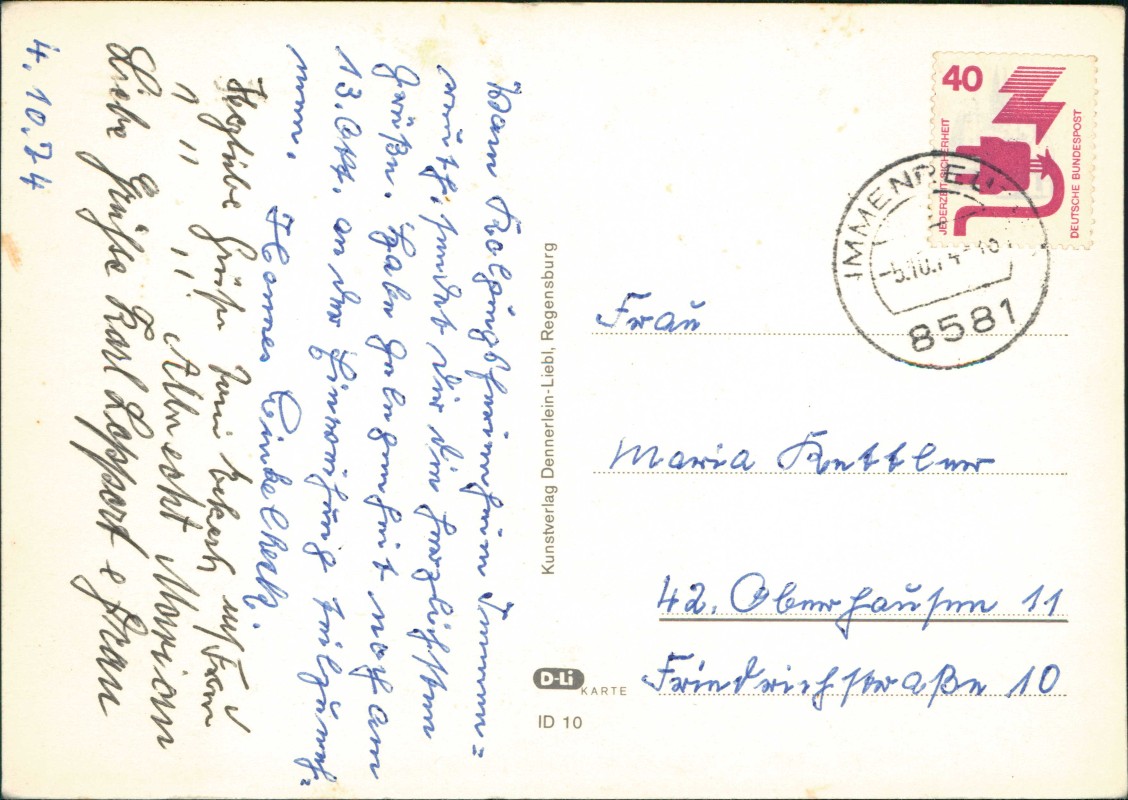 4.10.74
Vom Kolpingsferienheim Immen=
reuth, sendet dir die herzlichsten
Grüße. Habe Gelegenheit noch am
13. Okt. an der Einweihung teilzuneh=
men.
Hannes
Herzliche Grüße
Frau
" " " Albrecht
Liebe Grüße Karl Lippert & Frau
Kunstverlag Dennerlein-Liebl, Regensburg
D-Li KARTE
ID 10
40
JEDERZEIT SICHERHEIT
DEUTSCHE BUNDESPOST
IMMENREU
-5.10.74-10
8581
Frau
Maria Kettler
42. Oberhausen 11
Friedrichstraße 10